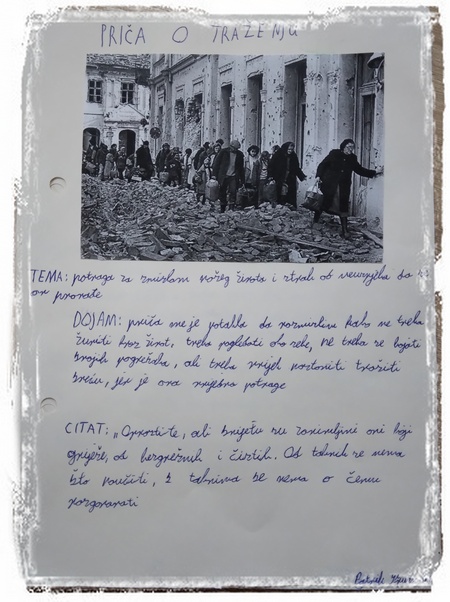 PRIČA O TRAŽENJU
TEMA: potraga za smislom našeg života i strah od neuspjeha da se
on pronađe
DOJAM: priča me je potakla da razmislim kako ne treba
žuriti kroz život, treba pogledati oko sebe, ne treba se bojati
svojih pogrešaka, ali treba uvijek nastaviti tražiti
sreću, jer je ona vrijedna potrage
CITAT: „Oprostite, ali svijetu su zanimljivi oni koji
griješe, od bezgrešnih i čistih. Od takvih se nema
što naučiti, s takvima se nema o čemu
razgovarati